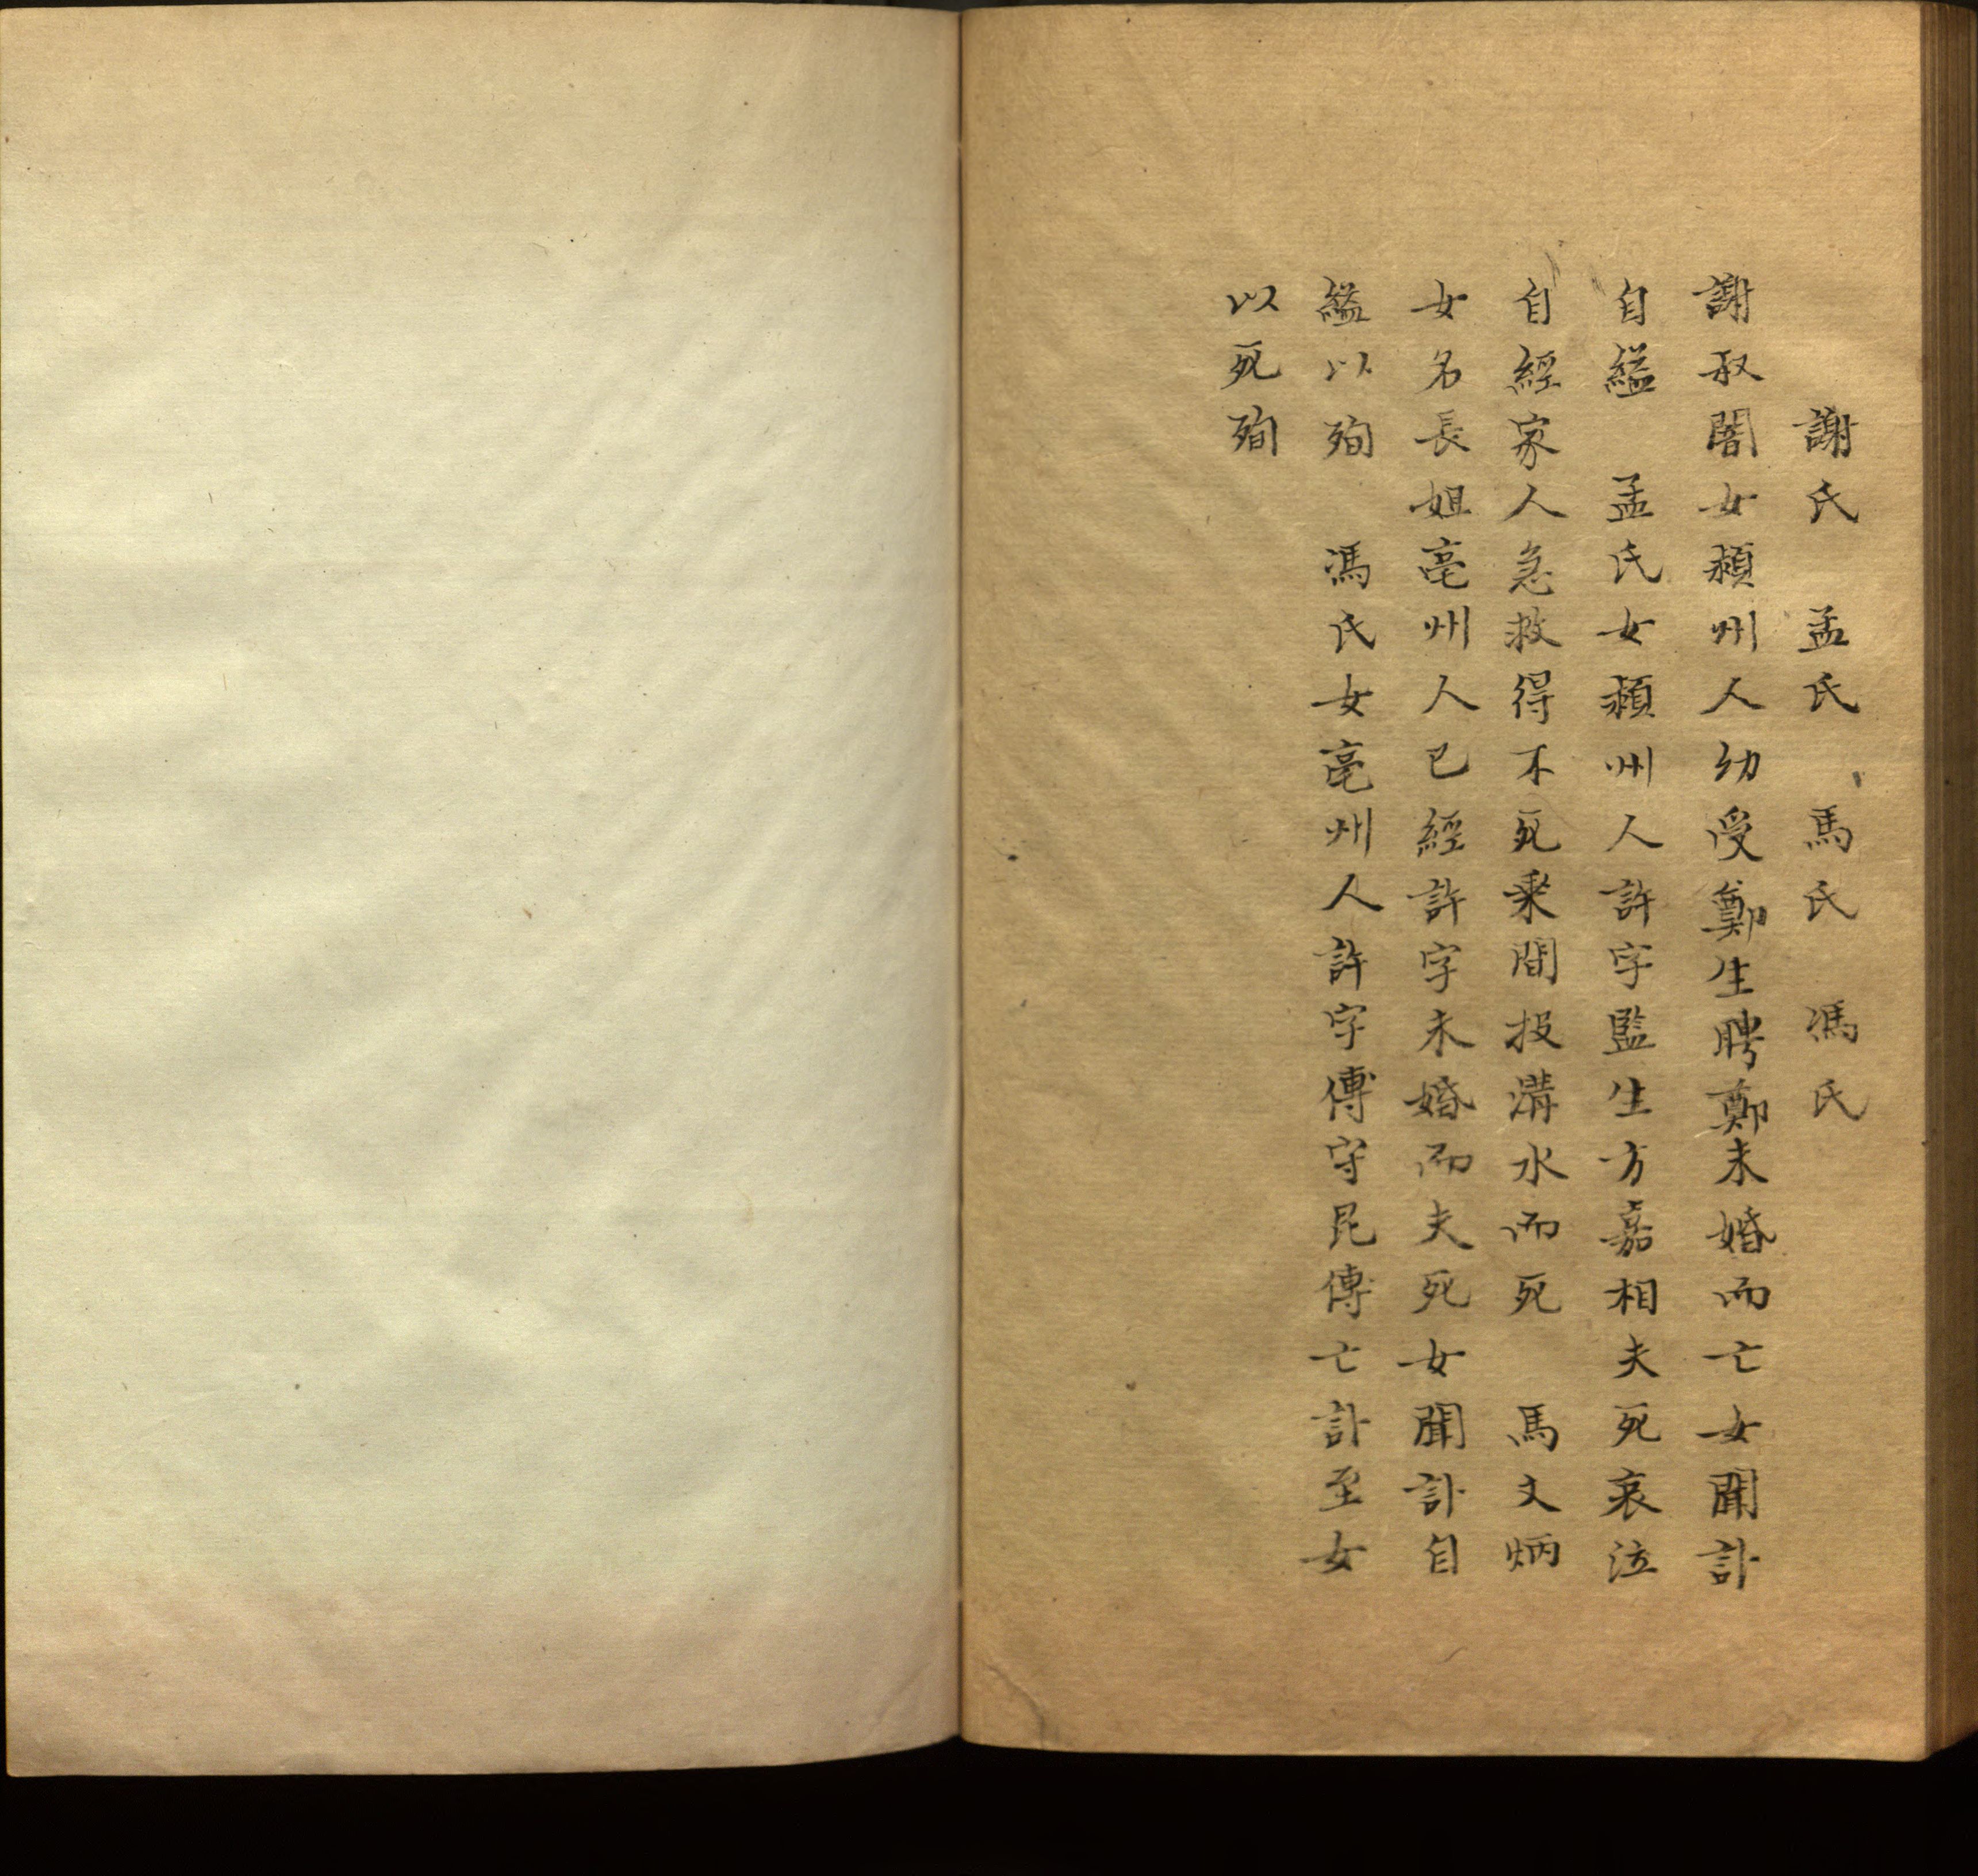 謝氏　孟氏　馬氏　馮氏
謝取闇女潁州人幼受鄭生聘鄭未婚而亡女聞訃
自縊　孟氏女潁州人許字監生方嘉相夫死哀泣
自經家人急救得不死乘間投溝水而死　馬文炳
女名長姐亳州人已經許字未婚而夫死女聞訃自
縊以殉　馮氏女亳州人許字傅守昆傅亡訃至女
以死殉